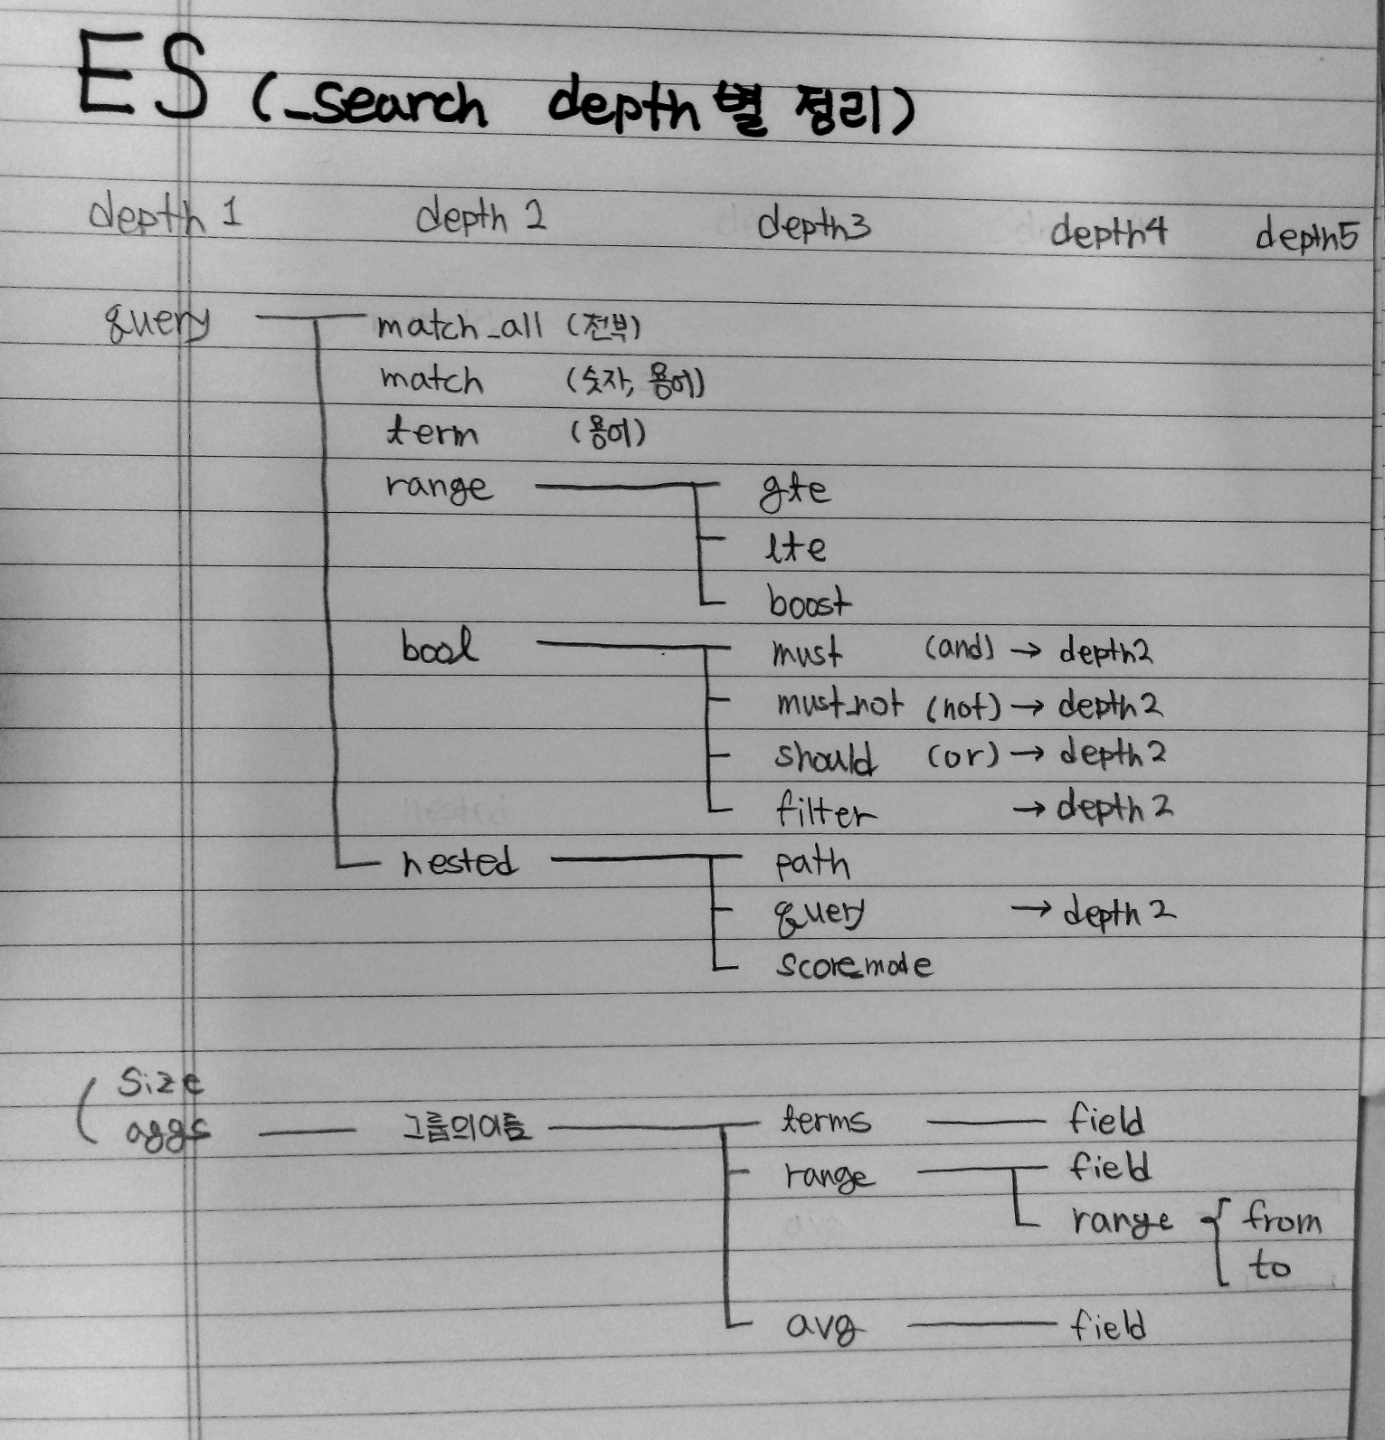 ES (_search depth별 정리)
depth 1 depth 2 depth3 depth4 depth5
query match_all (전부)
match (숫자, 용어)
term (용어)
range gte
lte
boost
bool must (and) → depth2
must_not (not) → depth 2
should (or) → depth 2
filter → depth 2
nested path
query → depth 2
score_mode
size
aggs 그룹의이름 terms field
range field
range { from
to
avg field